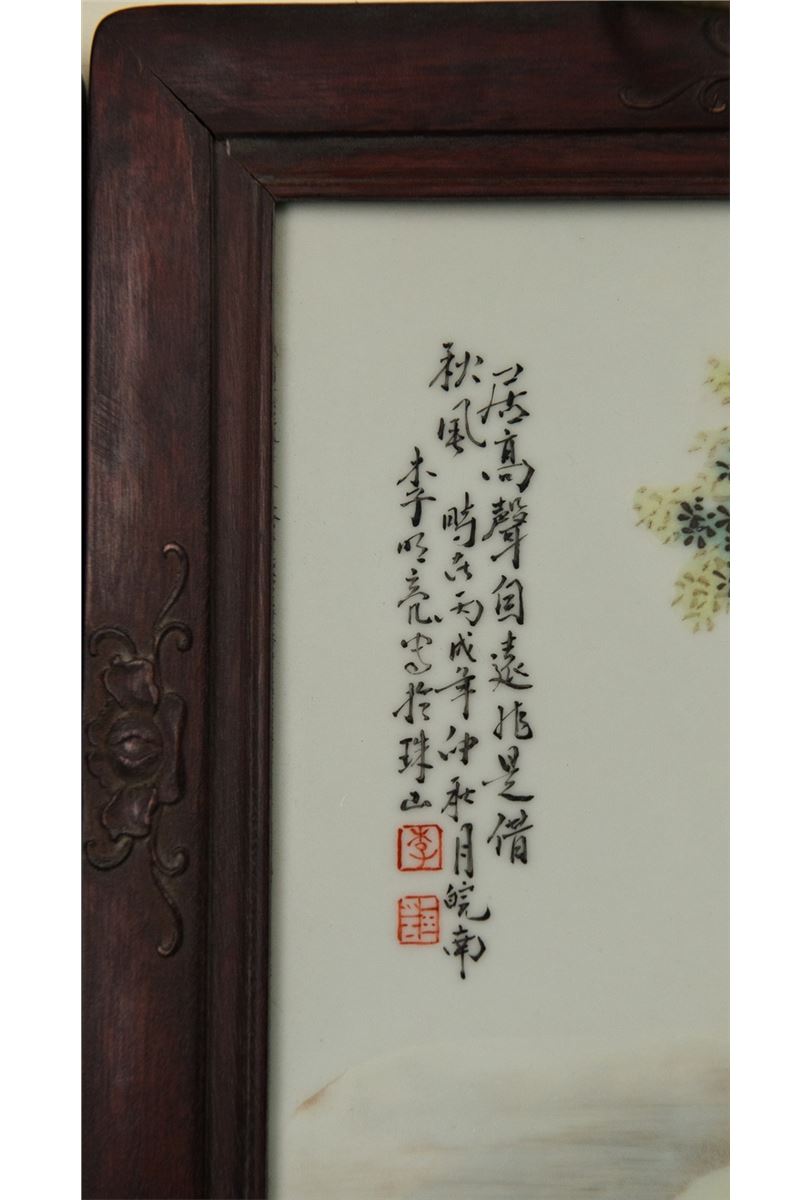 居高聲自遠非是借
秋風 時在丙戌年仲秋月皖南
李明亮寫於珠山
李